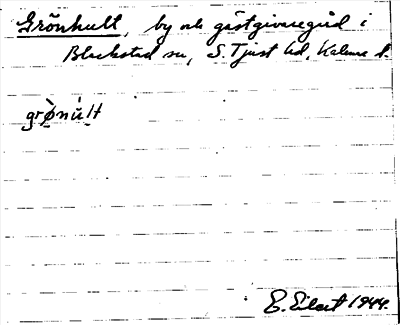 Grönhult, by och gästgivaregård i
Blackstad sn, S. Tjust hd, Kalmar l.
grø̀núlt
E. Eilert 1944.